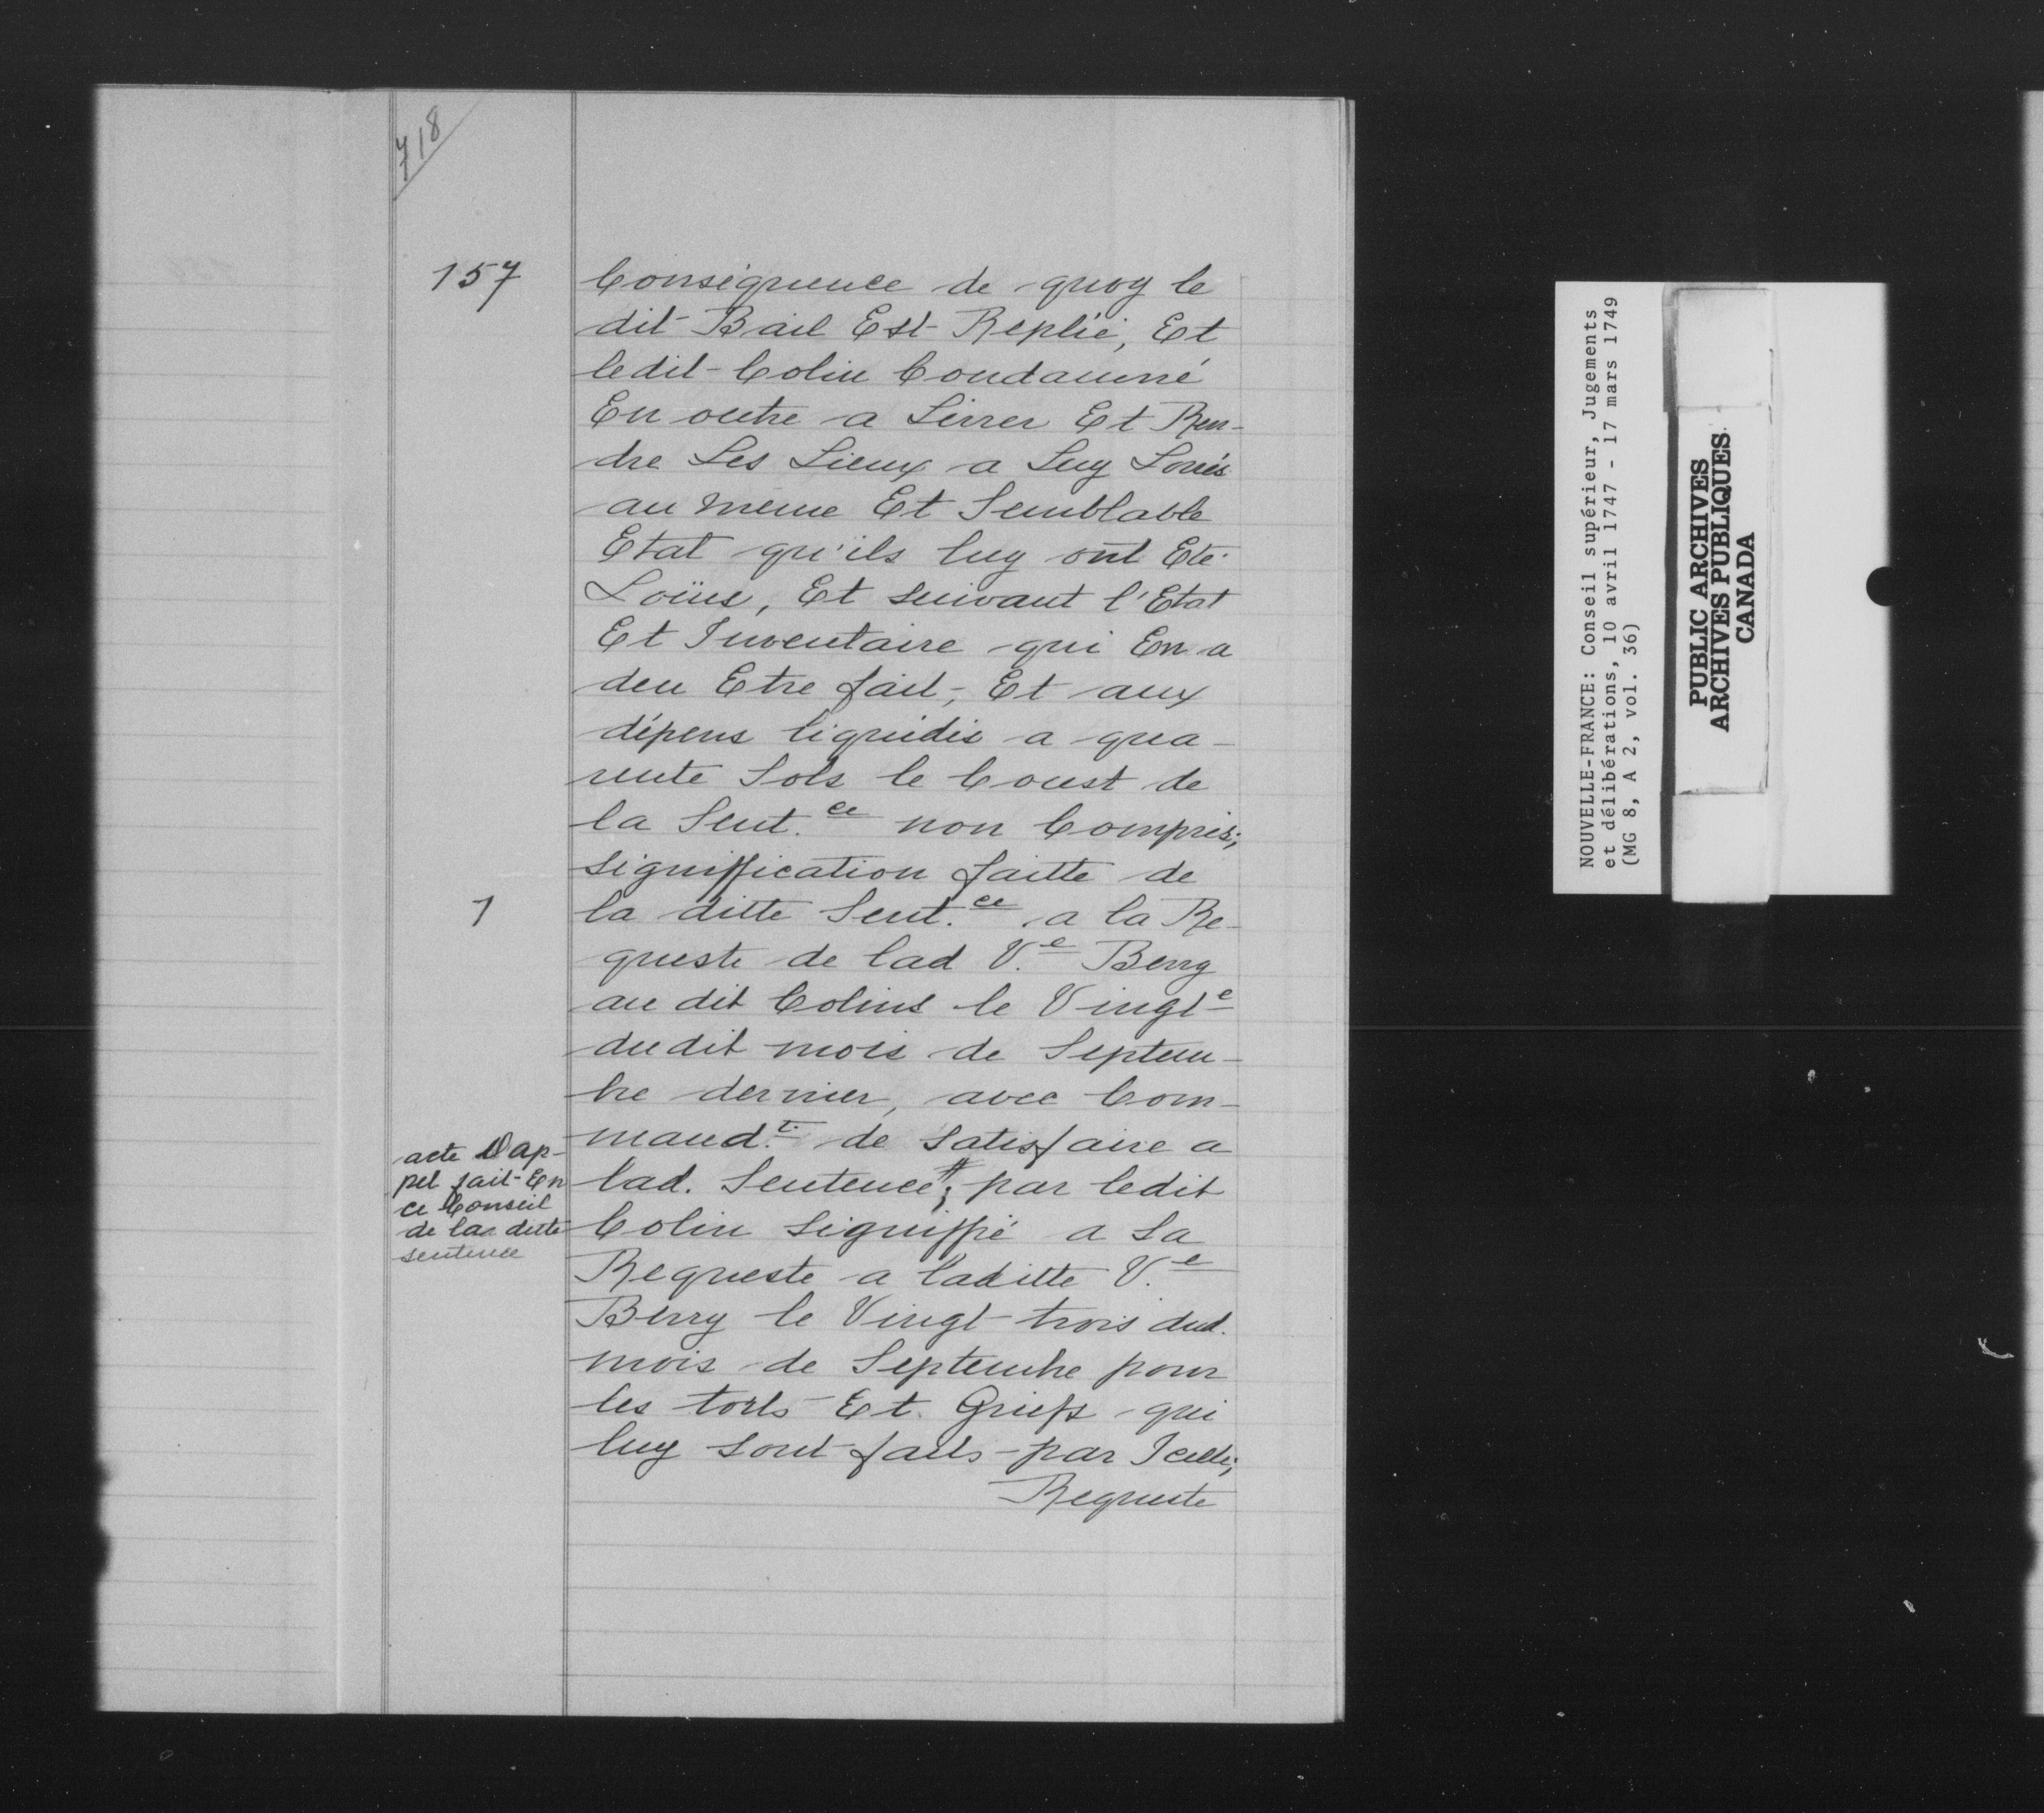 718
157
Conséquence de quoy le
dit Bail Est Replié, Et
ledit Colin Condamné
En outre a Livrer Et Ren-
dre Les Lieux a Luy Loués
au meme Et Semblable
Etat qu'ils luy ont Eté
Loüés, Et suivant l'Etat
Et Inventaire qui En a
deu Etre fait, Et aux
dépens liquidés a qua-
rente Sols le Coust de
la Sent.ce non Compris;
signiffication faitte de
1
la ditte Sent.ce a la Re-
queste de lad V.e Berry
au dit Colins le Vingt e
dudit mois de Septem-
bre dernier, avec Com-
mand.t de satisfaire a
lad. Sentence #; par ledit
Colin signiffié a sa
Requeste a laditte V.e
Berry le Vingt trois dud.
mois de Septembre pour
les torts Et Griefs qui
luy sont faits par Icelle;
Requeste
acte D'ap-
pel fait En
ce Conseil
de la ditte
sentence
NOUVELLE-FRANCE: Conseil supérieur, Jugements
et délibérations, 10 avril 1747 - 17 mars 1749
(MG 8, A 2, vol. 36)
PUBLIC ARCHIVES
ARCHIVES PUBLIQUES
CANADA